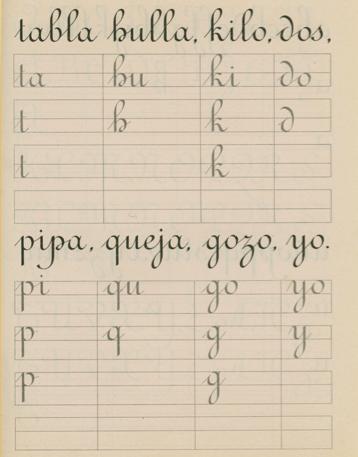 tabla hulla, kilo, dos,
ta hu ki do
t h k d
t k
pipa, queja, gozo, yo.
pi qu go yo
p q g y
p g